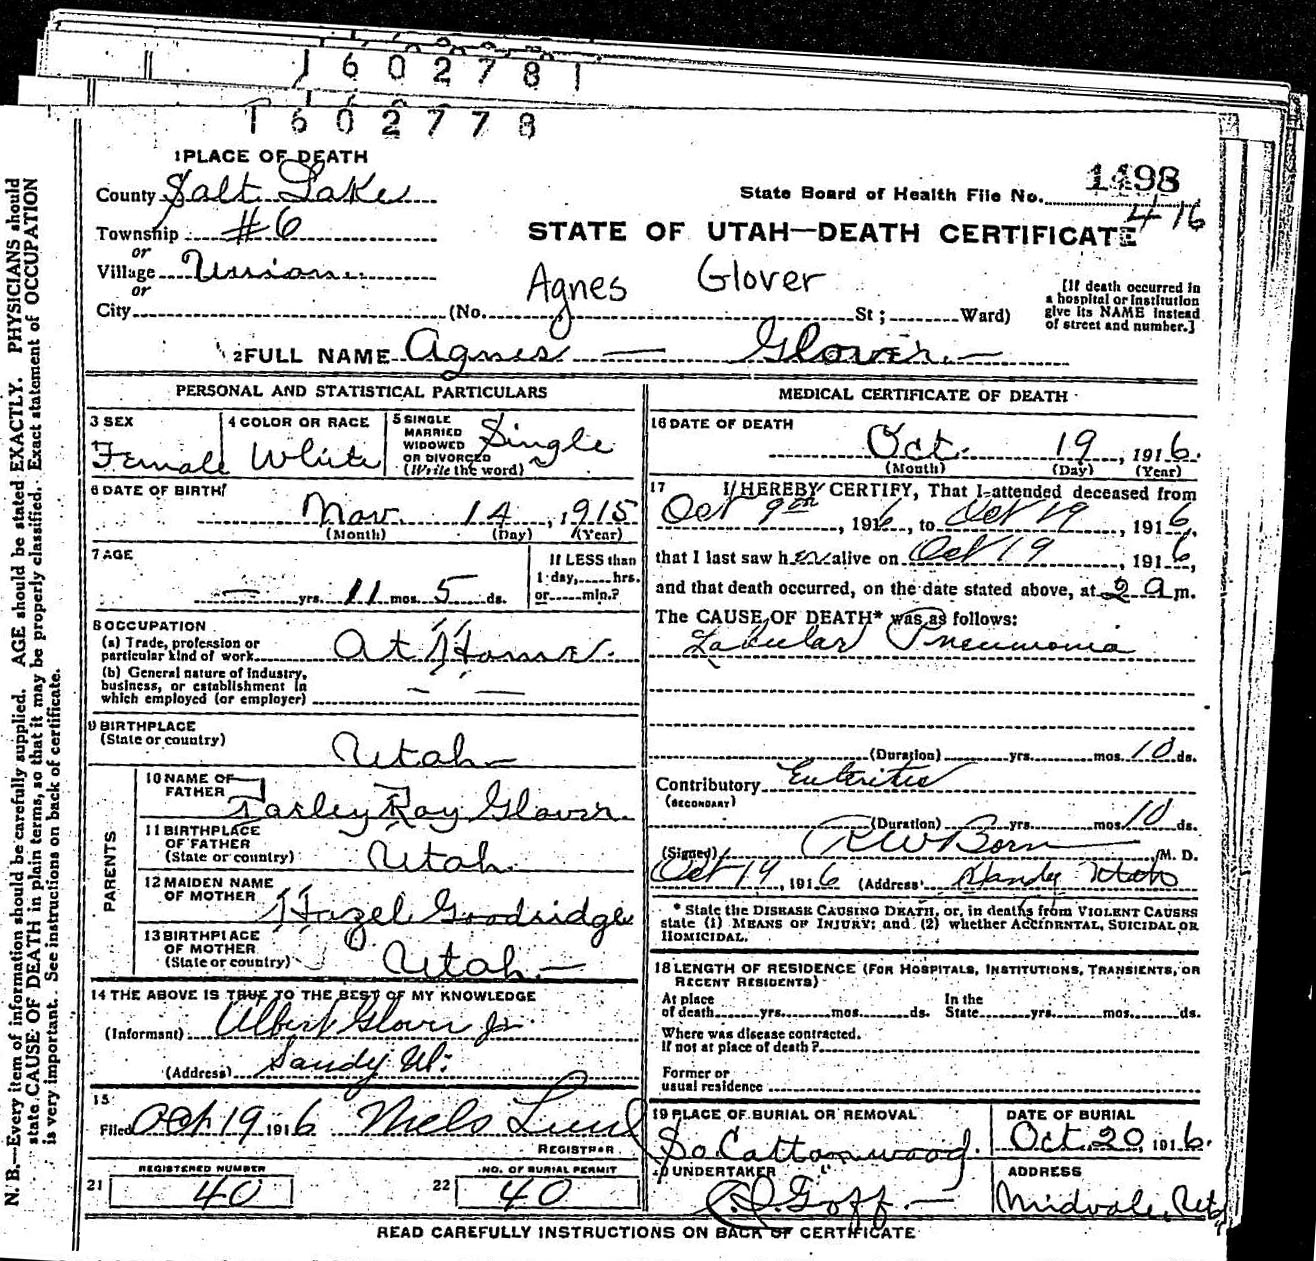 1602781
1602778
1 PLACE OF DEATH
County Salt Lake
State Board of Health File No. 1498
416
Township #6
or
STATE OF UTAH—DEATH CERTIFICATE
Village Union
or
Agnes Glover
[If death occurred in a hospital or institution give its NAME instead of street and number.]
City (No. St; Ward)
2 FULL NAME Agnes — Glover —
PERSONAL AND STATISTICAL PARTICULARS
3 SEX
Female
4 COLOR OR RACE
White
5 SINGLE MARRIED WIDOWED OR DIVORCED (Write the word)
Single
6 DATE OF BIRTH
Nov. 14, 1915
(Month) (Day) (Year)
7 AGE
— yrs. 11 mos. 5 ds.
If LESS than
1 day, hrs.
or min.?
8 OCCUPATION
(a) Trade, profession or
particular kind of work At Home
(b) General nature of industry,
business, or establishment in
which employed (or employer) — —
9 BIRTHPLACE
(State or country)
Utah —
PARENTS
10 NAME OF
FATHER
Farley Ray Glover
11 BIRTHPLACE
OF FATHER
(State or country) Utah
12 MAIDEN NAME
OF MOTHER
Hazel Goodridge
13 BIRTHPLACE
OF MOTHER
(State or country) Utah —
14 THE ABOVE IS TRUE TO THE BEST OF MY KNOWLEDGE
(Informant) Albert Glover Jr.
(Address) Sandy Ut.
15
Filed Oct 19 1916 Niels Lund
REGISTRAR
REGISTERED NUMBER
21 40
NO. OF BURIAL PERMIT
22 40
MEDICAL CERTIFICATE OF DEATH
16 DATE OF DEATH
Oct. 19, 1916
(Month) (Day) (Year)
17 I HEREBY CERTIFY, That I attended deceased from
Oct 9th, 1916, to Oct 19, 1916,
that I last saw her alive on Oct 19, 1916,
and that death occurred, on the date stated above, at 2 a m.
The CAUSE OF DEATH* was as follows:
Lobular Pneumonia
(Duration) yrs. mos. 10 ds.
Contributory Enteritis
(SECONDARY)
(Duration) yrs. mos. 10 ds.
(Signed) R W Born, M. D.
Oct 19, 1916 (Address) Sandy Utah
* State the DISEASE CAUSING DEATH, or, in deaths from VIOLENT CAUSES
state (1) MEANS OF INJURY; and (2) whether ACCIDENTAL, SUICIDAL OR
HOMICIDAL.
18 LENGTH OF RESIDENCE (FOR HOSPITALS, INSTITUTIONS, TRANSIENTS, OR
RECENT RESIDENTS)
At place
of death yrs. mos. ds.
In the
State yrs. mos. ds.
Where was disease contracted.
If not at place of death?
Former or
usual residence
19 PLACE OF BURIAL OR REMOVAL
So. Cottonwood.
DATE OF BURIAL
Oct. 20, 1916.
20 UNDERTAKER
Goff —
ADDRESS
Midvale, Utah
READ CAREFULLY INSTRUCTIONS ON BACK OF CERTIFICATE
N. B.—Every item of information should be carefully supplied. AGE should be stated EXACTLY. PHYSICIANS should
state CAUSE OF DEATH in plain terms, so that it may be properly classified. Exact statement of OCCUPATION
is very important. See instructions on back of certificate.